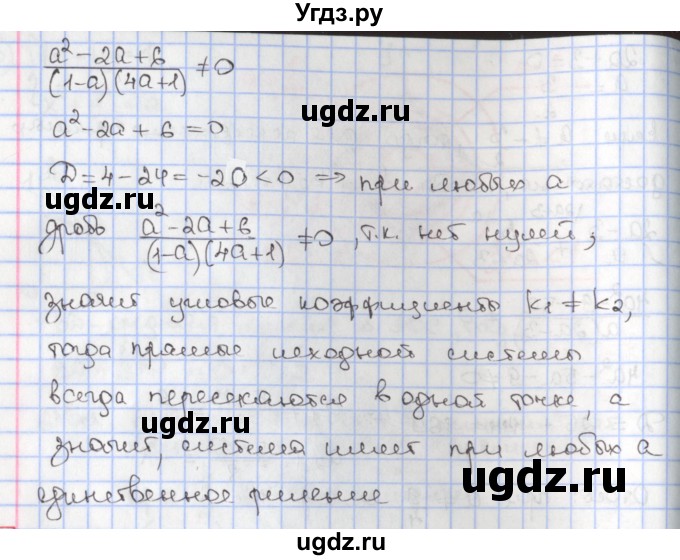 Угдз.ру
a² − 2a + 6 / (1−a)(4a+1) ≠ 0
ugdz.ru
ugdz.ru
a² − 2a + 6 = 0
D = 4 − 24 = −20 < 0 ⇒ при любых a
дробь a² − 2a + 6 / (1−a)(4a+1) ≠ 0, т.к. нет нулей,
ugdz.ru
ugdz.ru
значит угловые коэффициенты k₁ ≠ k₂,
тогда прямые исходной системы
ugdz.ru
всегда пересекаются в одной точке, а
ugdz.ru
значит, система имеет при любых a
единственное решение
ugdz.ru
ugdz.ru